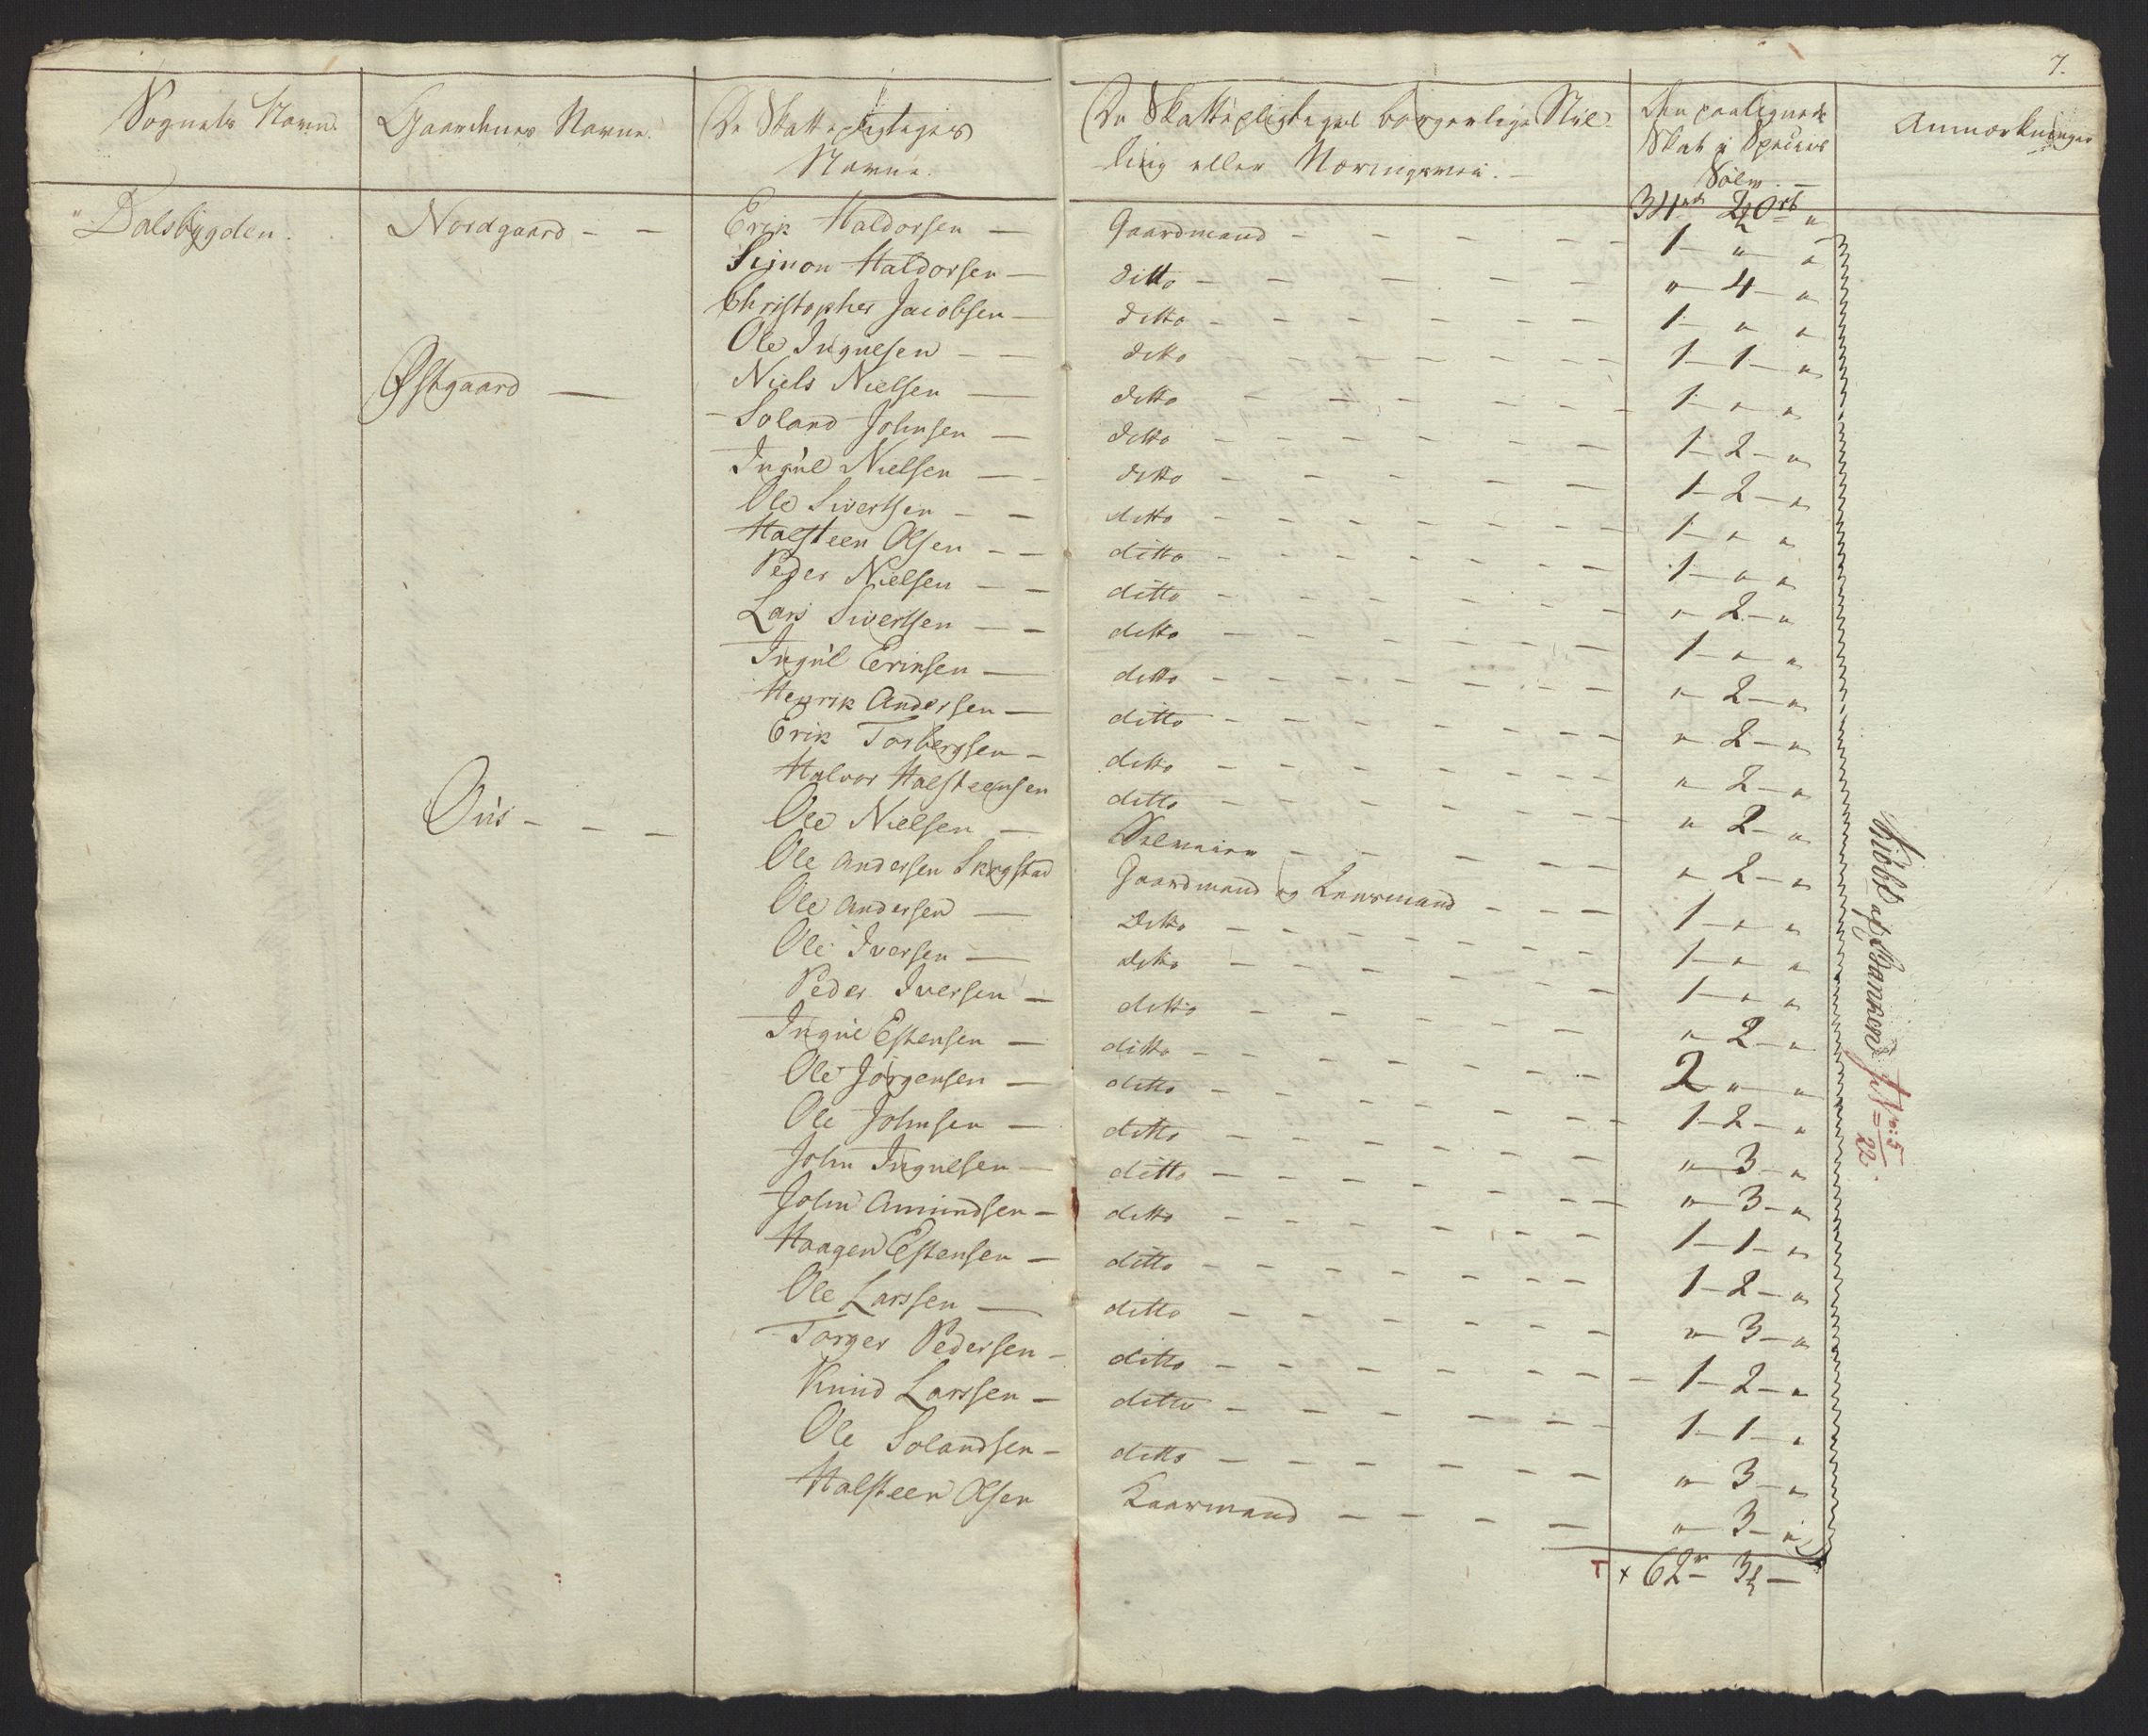 7.
Sognets Navn. Gaardenes Navne. De Skattepligtiges Navne. De Skattepligtiges borgerlige Stilling eller Næringsvei. Den paalignede Skat i Species Sølv. Anmærkninger
34 2½ Ort "
Dalsbygden. Nordgaard - - Erik Haldorsen — Gaardmand - - - 1 - " "
Simon Haldorsen — ditto - - - " - 4 - "
Christopher Jacobsen — ditto - - - 1 - " "
Ole Ingulsen - - ditto - - - 1 - 1 - "
Østgaard — Niels Nielsen — ditto - - - 1 - " "
Soland Johnsen — ditto - - - 1 - 2 - "
Ingul Nielsen — ditto - - - 1 - 2 - "
Ole Sivertsen - - ditto - - - 1 - " "
Halsteen Olsen - - ditto - - - 1 - " "
Peder Nielsen - - ditto - - - " - 2 - "
Lars Sivertsen - - ditto - - - 1 - " "
Ingul Eriksen — ditto - - - " - 2 - "
Henrik Andersen — ditto - - - " - 2 - "
Erik Torbergsen - ditto - - - " - 2 - "
Halvor Halsteensen ditto - - - " - 2 - "
Ous - - - Ole Nielsen — - - - " - 2 - "
Ole Andersen Skogstad Gaardmand og Lensmand - - - 1 - " "
Ole Andersen — Ditto - - - 1 - " "
Ole Iversen — ditto - - - 1 - " "
Peder Iversen — ditto - - - " - 2 - "
Ingul Estensen — ditto - - - 2 " "
Ole Jörgensen — ditto - - - 1 - 2 - "
Ole Johnsen — ditto - - - " - 3 - "
John Ingulsen — ditto - - - " - 3 - "
John Amundsen - ditto - - - 1 - 1 - "
Haagen Estensen - ditto - - - 1 - 2 - "
Ole Larssen — ditto - - - " - 3 - "
Torger Pedersen - ditto - - - 1 - 2 - "
Knud Larssen - ditto - - - 1 - 1 - "
Ole Solandsen - ditto - - - " - 3 - "
Halsteen Olsen Kaarmand - - - " - 3 - "
T + 62 - 3½ —
Kiöbt af Banken No: 5/22.